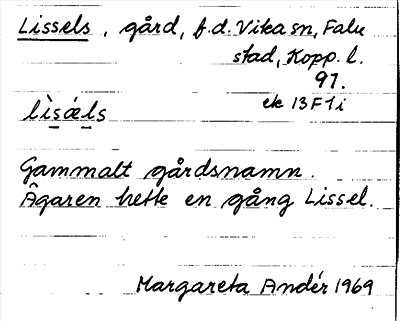 Lissels, gård, f.d. Vika sn, Falu
stad, Kopp. l.
91.
ek 13F1i
lìsǽls
Gammalt gårdsnamn.
Ägaren hette en gång Lissel.
Margareta Andér 1969